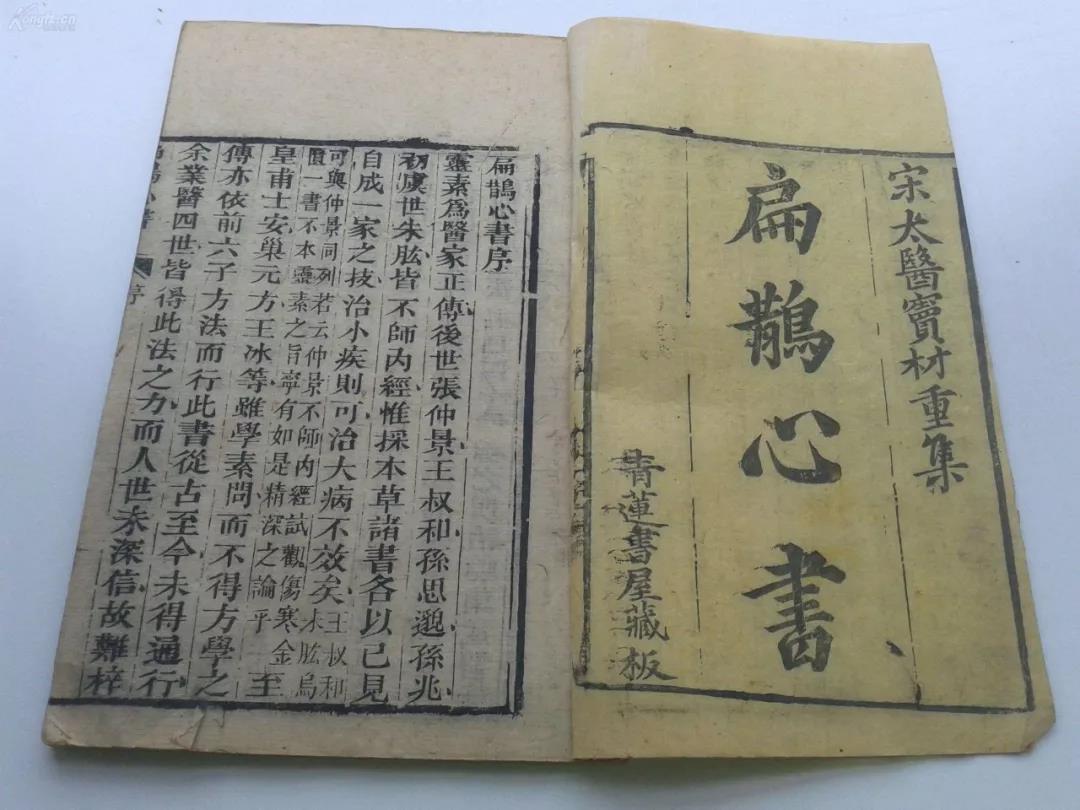 宋太醫竇材重集
扁鵲心書
青蓮書屋藏板
扁鵲心書序
靈素爲醫家正傳後世張仲景王叔和孫思邈孫兆
初虞世朱肱皆不師內經惟採本草諸書各以己見
自成一家之技治小疾則可治大病不效矣
王叔和
朱肱烏
可與仲景同列若云仲景不師內經試觀傷寒金
匱一書不本靈素之旨寧有如是精深之論乎
至
皇甫士安巢元方王冰等雖學素問而不得方學之
傳亦依前六子方法而行此書從古至今未得通行
余業醫四世皆得此法之力而人世未深信故難梓
扁鵲心書 序
Kongfz.cn